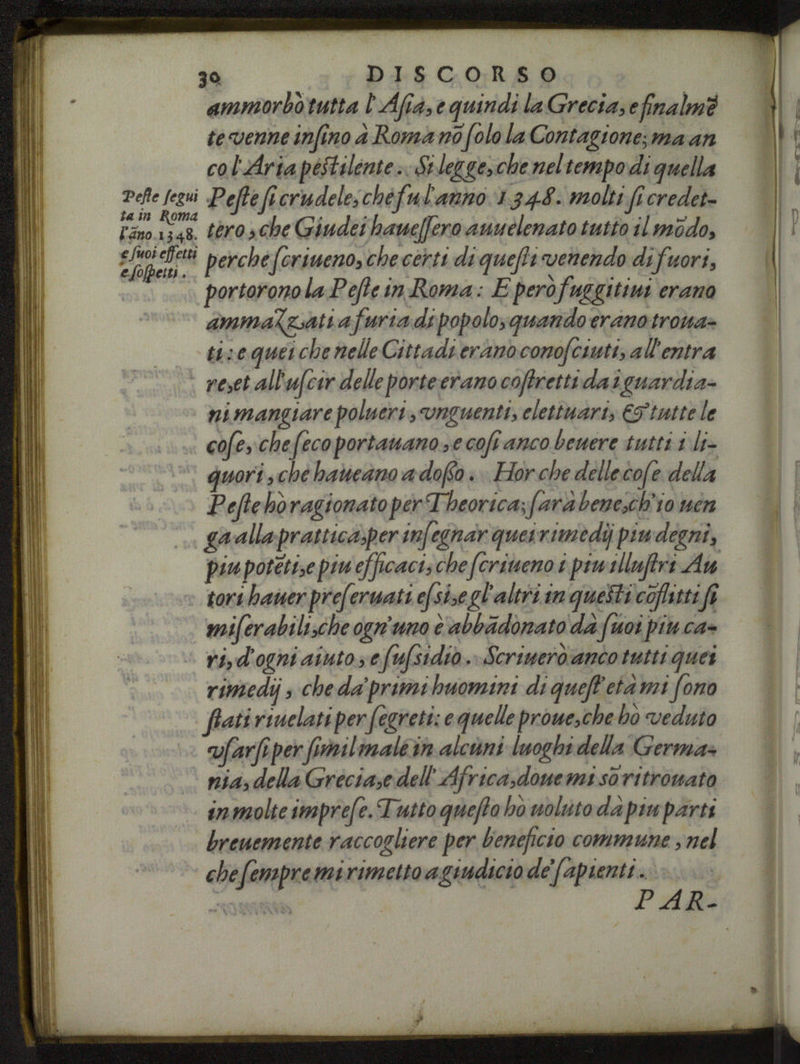 30 DISCORSO
ammorbò tutta l'Asia, e quindi la Grecia, e finalmẽ
te venne infino à Roma nõ solo la Contagione; ma an
co l'Aria pestilente. Si legge, che nel tempo di quella
Peste sì crudele, che fu l'anno 1348. molti si credet-
tero, che Giudei hauessero auuelenato tutto il mõdo,
perche scriueno, che certi di questi venendo di fuori,
portorono la Peste in Roma: E però fuggitiui erano
ammazzati a furia di popolo, quando erano troua-
ti: e quei che nelle Cittadi erano conosciuti, all'entra
re, et all'uscir delle porte erano costretti da i guardia-
ni mangiare polueri, vnguenti, elettuari, & tutte le
cose, che seco portauano, e cosi anco beuere tutti i li-
quori, che haueano a doßo. Hor che delle cose della
Peste hò ragionato per Theorica; sarà bene, ch'io uen
ga alla prattica, per insegnar quei rimedij piu degni,
piu potẽti, e piu efficaci, che scriueno i piu illustri Au
tori hauer preseruati essi, e gl'altri in questi cõflitti sì
miserabili, che ogn'uno è abbãdonato dà suoi piu ca-
ri, d'ogni aiuto, e sussidio. Scriuerò anco tutti quei
rimedij, che da' primi huomini di quest'età mi sono
stati riuelati per segreti: e quelle proue, che hò veduto
vsarsi per simil male in alcuni luoghi della Germa-
nia, della Grecia, e dell'Africa, doue mi sõ ritrouato
in molte imprese. Tutto questo hò uoluto dà piu parti
breuemente raccogliere per beneficio commune, nel
che sempre mi rimetto a giudicio de' sapienti.
PAR-
Peste segui
ta in Roma
l'ãno. 1348.
e suoi effetti
e sospetti.